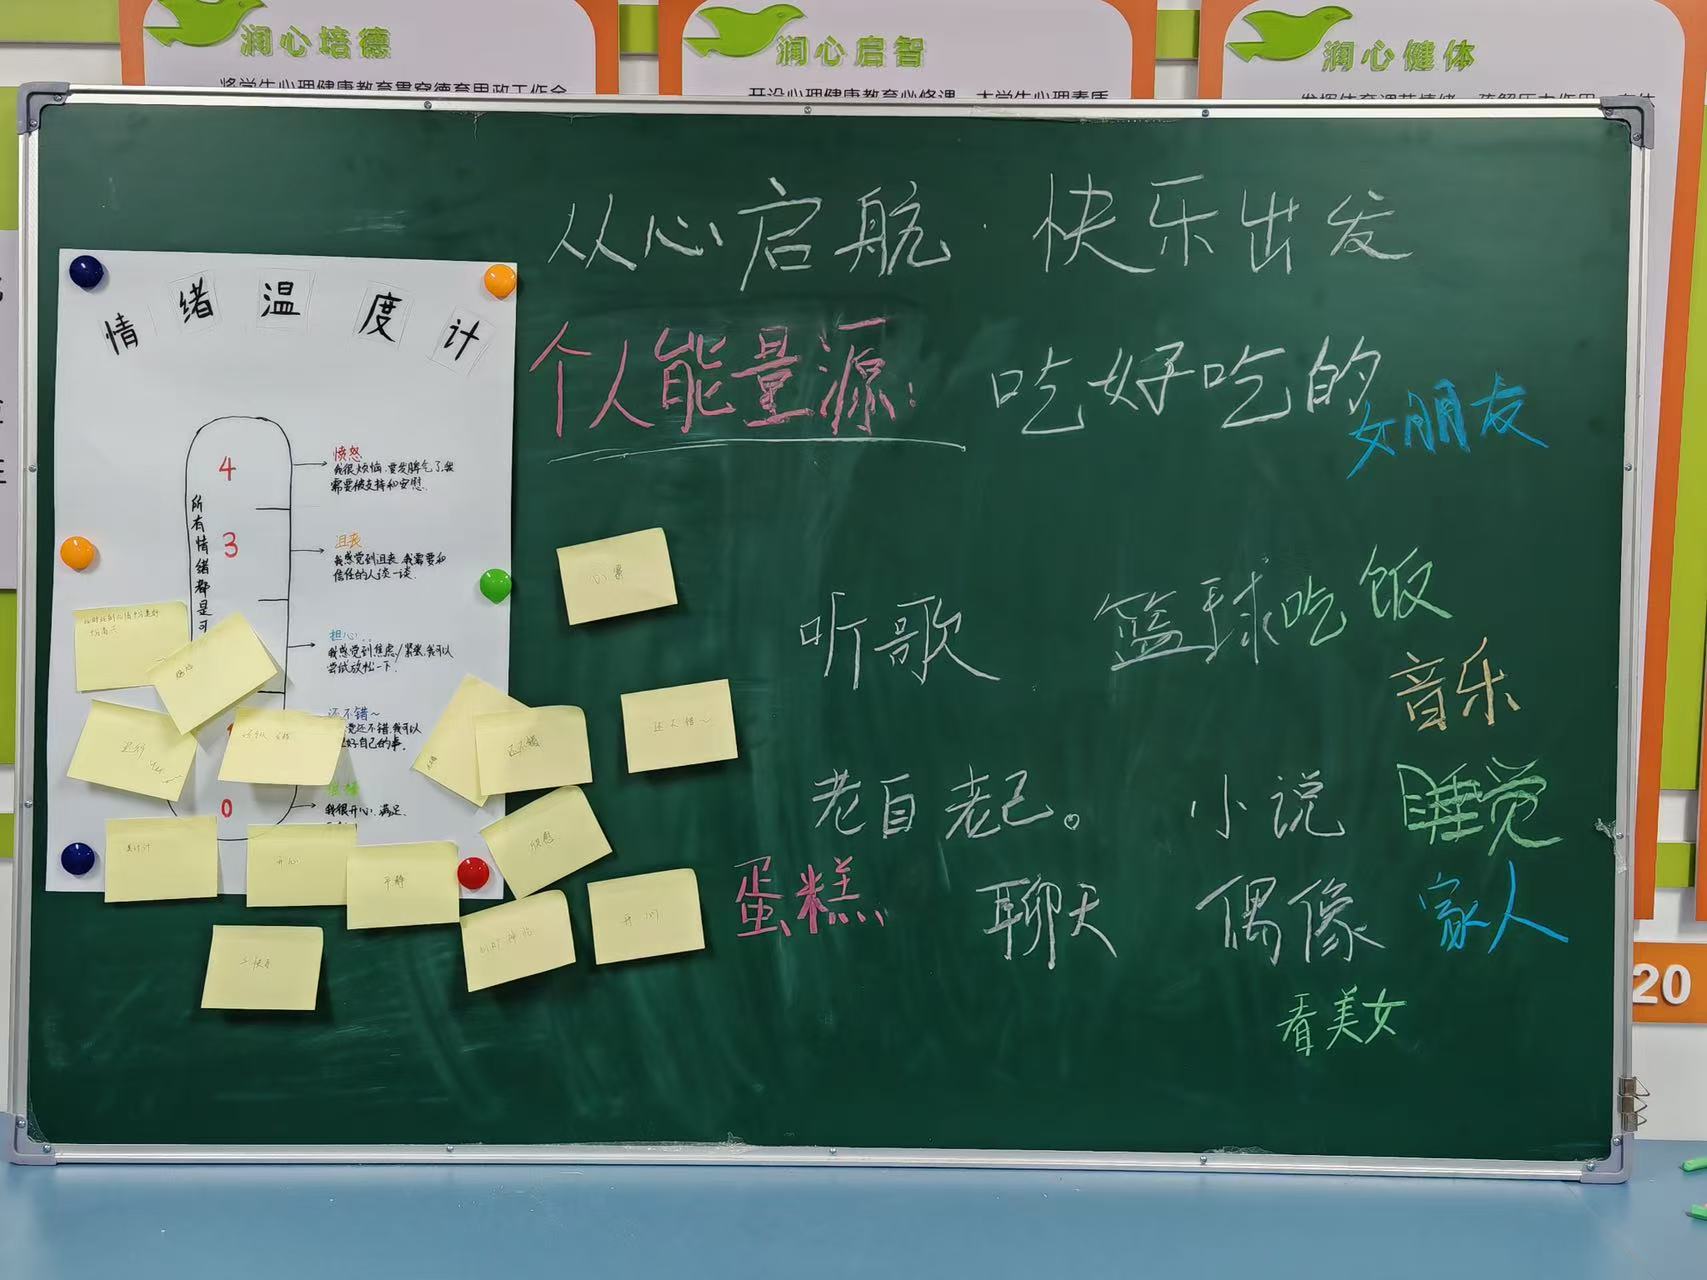 润心培德
润心启智
润心健体
将学生心理健康教育贯穿德育思政工作全
开设心理健康教育必修课
从心启航·快乐出发
个人能量源:
吃好吃的
女朋友
听歌
篮球
吃饭
音乐
老自老己。
小说
睡觉
蛋糕
聊天
偶像
家人
看美女
情绪温度计
所有情绪都是可
4
愤怒
我很烦恼,要发脾气了,我
需要被支持和安慰.
3
沮丧
我感觉到沮丧,我需要和
信任的人谈一谈.
担心..
我感觉到焦虑/紧张,我可以
尝试放松一下.
还不错~
觉还不错,我可以
好自己的事.
0
我很开心,满足、
还不错
还不错~
开心
平静
开心
20